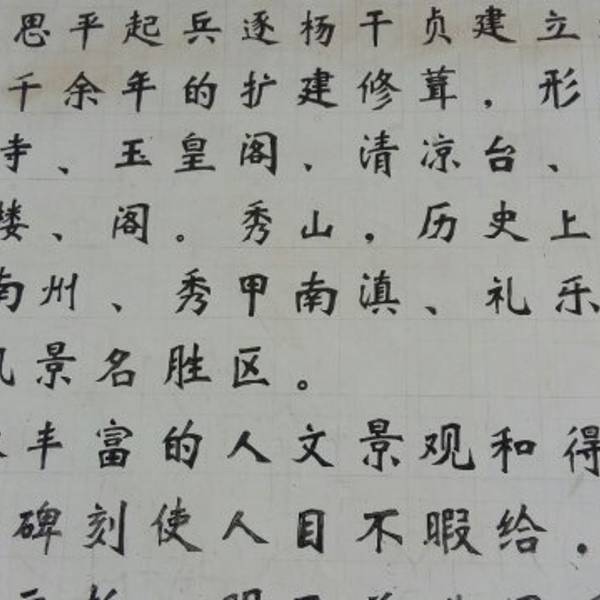 思平起兵逐杨干贞建立
千余年的扩建修葺，形
寺、玉皇阁、清凉台、
楼、阁。秀山，历史上
南州、秀甲南滇、礼乐
风景名胜区。
丰富的人文景观和得
碑刻使人目不暇给。